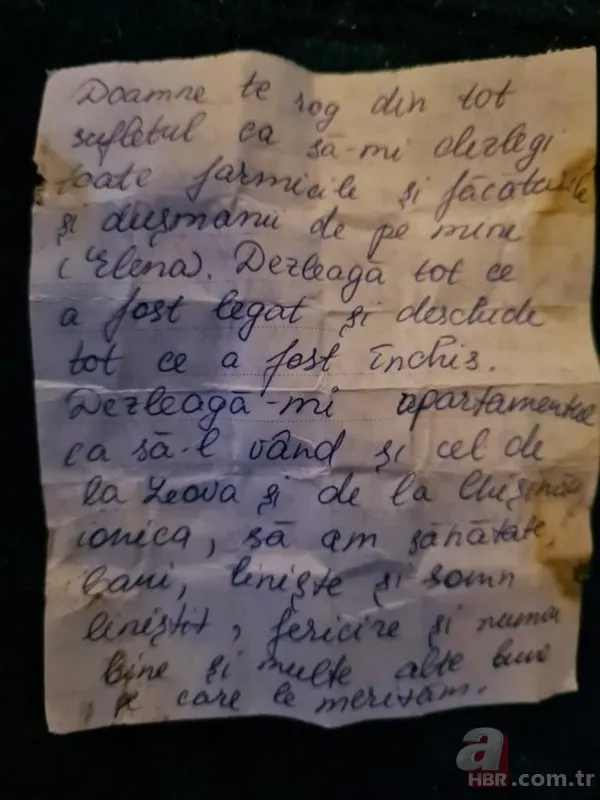 Doamne te rog din tot
sufletul ca să-mi dezlegi
toate farmicile și făcăturile
și dușmanii de pe mine
(Elena). Dezleagă tot ce
a fost legat și deschide
tot ce a fost închis.
Dezleagă-mi apartamentul
ca să-l vând și cel de
la Leova și de la Chișinău
ionica, să am sănătate,
bani, liniște și somn
liniștit, fericire și numai
bine și multe alte bune
pe care le merităm.
a
HBR.com.tr